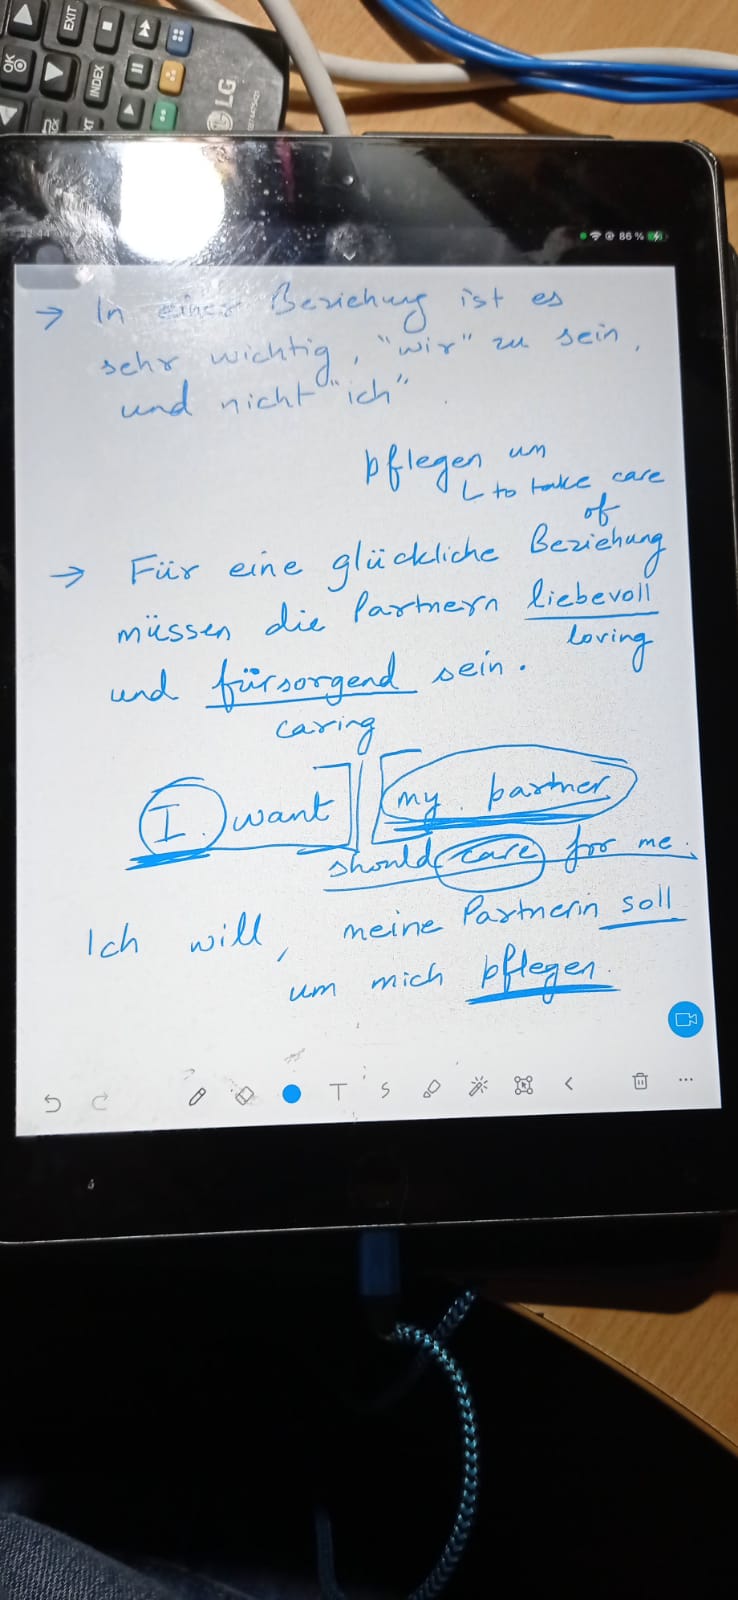 EXIT
OK
INDEX
LG
86 %
→ In einer Beziehung ist es
sehr wichtig, "wir" zu sein,
und nicht "ich".
pflegen um
to take care
of
→ Für eine glückliche Beziehung
müssen die Partnern liebevoll
loving
und fürsorgend sein.
caring
I want my partner
should care for me.
Ich will, meine Partnerin soll
um mich pflegen.
T S